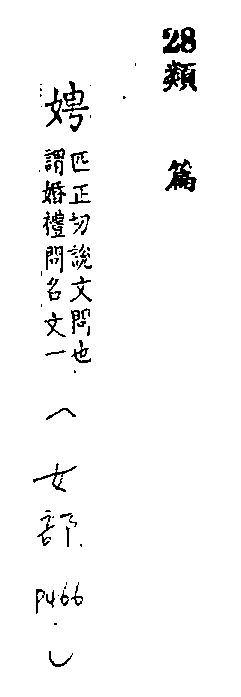 28
類篇
娉
匹正切說文問也
謂婚禮問名文一
(女部 P466.)